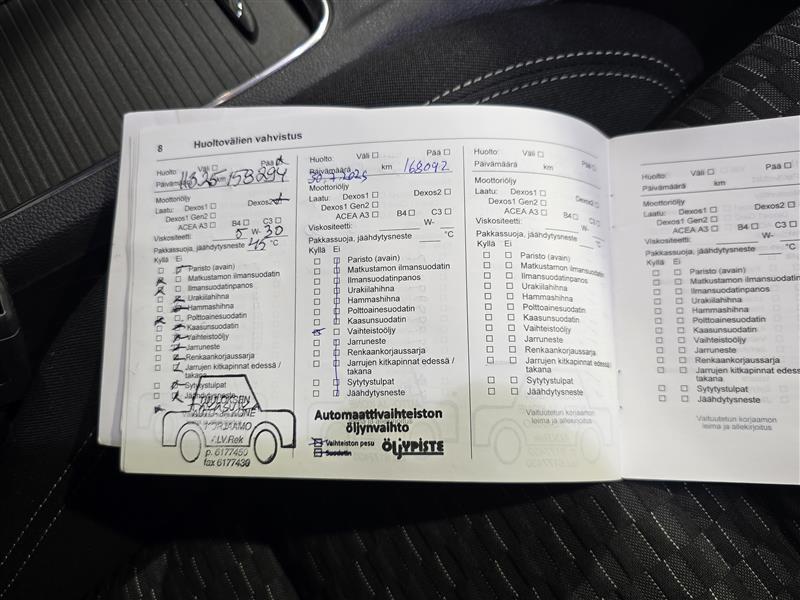 8 Huoltovälien vahvistus
Huolto: Väli ☐ Pää
Päivämäärä 158294 km
Moottoriöljy
Laatu: Dexos1 ☐ Dexos2
Dexos1 Gen2 ☐
ACEA A3 ☐ B4 ☐ C3 ☐
Viskositeetti: 5 W- 30
Pakkassuoja, jäähdytysneste 45 °C
Kyllä Ei
Paristo (avain)
Matkustamon ilmansuodatin
Ilmansuodatinpanos
Urakiilahihna
Hammashihna
Polttoainesuodatin
Kaasunsuodatin
Vaihteistoöljy
Jarruneste
Renkaankorjaussarja
Jarrujen kitkapinnat edessä /
takana
Sytytystulpat
Jäähdytysneste
KORJAAMO
p. 6177450
fax 6177430
Huolto: Väli ☐ Pää ☐
Päivämäärä 30.7.2025 km 168092
Moottoriöljy
Laatu: Dexos1 ☐ Dexos2 ☐
Dexos1 Gen2 ☐
ACEA A3 ☐ B4 ☐ C3 ☐
Viskositeetti: W-
Pakkassuoja, jäähdytysneste °C
Kyllä Ei
Paristo (avain)
Matkustamon ilmansuodatin
Ilmansuodatinpanos
Urakiilahihna
Hammashihna
Polttoainesuodatin
Kaasunsuodatin
Vaihteistoöljy
Jarruneste
Renkaankorjaussarja
Jarrujen kitkapinnat edessä /
takana
Sytytystulpat
Jäähdytysneste
Automaattivaihteiston
öljynvaihto
Vaihteiston pesu
Suodatin
ÖLJYPISTE
Huolto: Väli ☐ Pää ☐
Päivämäärä km
Moottoriöljy
Laatu: Dexos1 ☐ Dexos2 ☐
Dexos1 Gen2 ☐
ACEA A3 ☐ B4 ☐ C3 ☐
Viskositeetti: W-
Pakkassuoja, jäähdytysneste °C
Kyllä Ei
Paristo (avain)
Matkustamon ilmansuodatin
Ilmansuodatinpanos
Urakiilahihna
Hammashihna
Polttoainesuodatin
Kaasunsuodatin
Vaihteistoöljy
Jarruneste
Renkaankorjaussarja
Jarrujen kitkapinnat edessä /
takana
Sytytystulpat
Jäähdytysneste
Valtuutetun korjaamon
leima ja allekirjoitus
Huolto: Väli ☐ Pää ☐
Päivämäärä km
Moottoriöljy
Laatu: Dexos1 ☐ Dexos2
Dexos1 Gen2 ☐
ACEA A3 ☐ B4 ☐ C3
Viskositeetti: W-
Pakkassuoja, jäähdytysneste
Kyllä Ei
Paristo (avain)
Matkustamon ilmansuodatin
Ilmansuodatinpanos
Urakiilahihna
Hammashihna
Polttoainesuodatin
Kaasunsuodatin
Vaihteistoöljy
Jarruneste
Renkaankorjaussarja
Jarrujen kitkapinnat edessä
takana
Sytytystulpat
Jäähdytysneste
Valtuutetun korjaamon
leima ja allekirjoitus